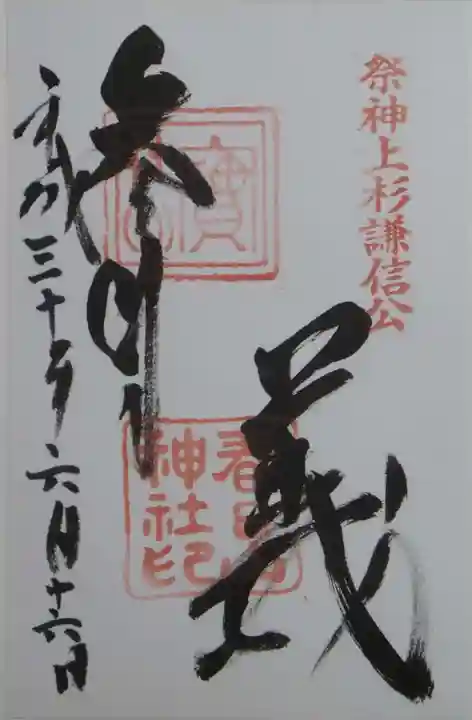 祭神上杉謙信公
義
参拝
春日山
神社印
平成三十年六月十六日